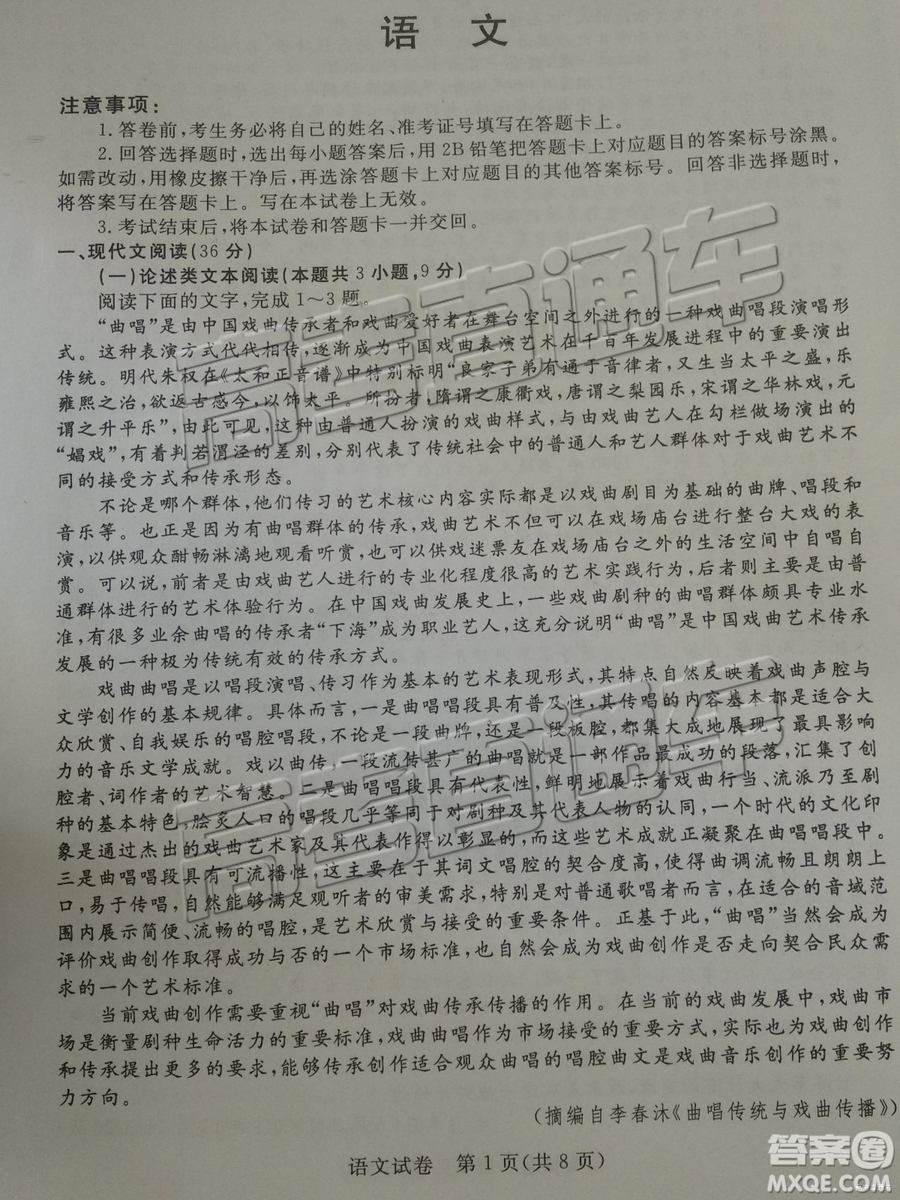 语 文
注意事项:
1.答卷前,考生务必将自己的姓名、准考证号填写在答题卡上。
2.回答选择题时,选出每小题答案后,用2B铅笔把答题卡上对应题目的答案标号涂黑。
如需改动,用橡皮擦干净后,再选涂答题卡上对应题目的其他答案标号。回答非选择题时,
将答案写在答题卡上。写在本试卷上无效。
3.考试结束后,将本试卷和答题卡一并交回。
一、现代文阅读(36分)
(一)论述类文本阅读(本题共3小题,9分)
阅读下面的文字,完成1~3题。
“曲唱”是由中国戏曲传承者和戏曲爱好者在舞台空间之外进行的一种戏曲唱段演唱形
式。这种表演方式代代相传,逐渐成为中国戏曲表演艺术在千百年发展进程中的重要演出
传统。明代朱权在《太和正音谱》中特别标明“良家子弟有通于音律者,又生当太平之盛,乐
雍熙之治,欲返古感今,以饰太平。所扮者,隋谓之康衢戏,唐谓之梨园乐,宋谓之华林戏,元
谓之升平乐”,由此可见,这种由普通人扮演的戏曲样式,与由戏曲艺人在勾栏做场演出的
“娼戏”,有着判若渭泾的差别,分别代表了传统社会中的普通人和艺人群体对于戏曲艺术不
同的接受方式和传承形态。
不论是哪个群体,他们传习的艺术核心内容实际都是以戏曲剧目为基础的曲牌、唱段和
音乐等。也正是因为有曲唱群体的传承,戏曲艺术不但可以在戏场庙台进行整台大戏的表
演,以供观众酣畅淋漓地观看听赏,也可以供戏迷票友在戏场庙台之外的生活空间中自唱自
赏。可以说,前者是由戏曲艺人进行的专业化程度很高的艺术实践行为,后者则主要是由普
通群体进行的艺术体验行为。在中国戏曲发展史上,一些戏曲剧种的曲唱群体颇具专业水
准,有很多业余曲唱的传承者“下海”成为职业艺人,这充分说明“曲唱”是中国戏曲艺术传承
发展的一种极为传统有效的传承方式。
戏曲曲唱是以唱段演唱、传习作为基本的艺术表现形式,其特点自然反映着戏曲声腔与
文学创作的基本规律。具体而言,一是曲唱唱段具有普及性,其传唱的内容基本都是适合大
众欣赏、自我娱乐的唱腔唱段,不论是一段曲牌,还是一段板腔,都集大成地展现了最具影响
力的音乐文学成就。戏以曲传,一段流传甚广的曲唱就是一部作品最成功的段落,汇集了创
腔者、词作者的艺术智慧。二是曲唱唱段具有代表性,鲜明地展示着戏曲行当、流派乃至剧
种的基本特色,脍炙人口的唱段几乎等同于对剧种及其代表人物的认同,一个时代的文化印
象是通过杰出的戏曲艺术家及其代表作得以彰显的,而这些艺术成就正凝聚在曲唱唱段中。
三是曲唱唱段具有可流播性,这主要在于其词文唱腔的契合度高,使得曲调流畅且朗朗上
口,易于传唱,自然能够满足观听者的审美需求,特别是对普通歌唱者而言,在适合的音域范
围内展示简便、流畅的唱腔,是艺术欣赏与接受的重要条件。正基于此,“曲唱”当然会成为
评价戏曲创作取得成功与否的一个市场标准,也自然会成为戏曲创作是否走向契合民众需
求的一个艺术标准。
当前戏曲创作需要重视“曲唱”对戏曲传承传播的作用。在当前的戏曲发展中,戏曲市
场是衡量剧种生命活力的重要标准,戏曲曲唱作为市场接受的重要方式,实际也为戏曲创作
和传承提出更多的要求,能够传承创作适合观众曲唱的唱腔曲文是戏曲音乐创作的重要努
力方向。
(摘编自李春沐《曲唱传统与戏曲传播》)
语文试卷 第1页(共8页)
高考直通车
高考直通车
答案圈
MXQE.COM